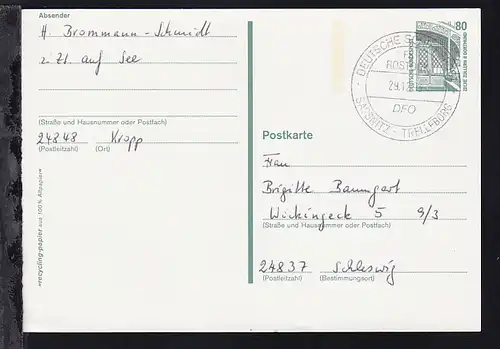 Absender
H. Brommann-Schmidt
z. Zt. auf See
(Straße und Hausnummer oder Postfach)
24848 Kropp
(Postleitzahl) (Ort)
»recycling-papier aus 100% Altpapier«
80
DEUTSCHE
29.1
DFO
SASSNITZ - TRELLEBORG
Postkarte
Frau
Brigitte Baumgart
Wickingeck 5 9/3
(Straße und Hausnummer oder Postfach)
24837 Schleswig
(Postleitzahl) (Bestimmungsort)